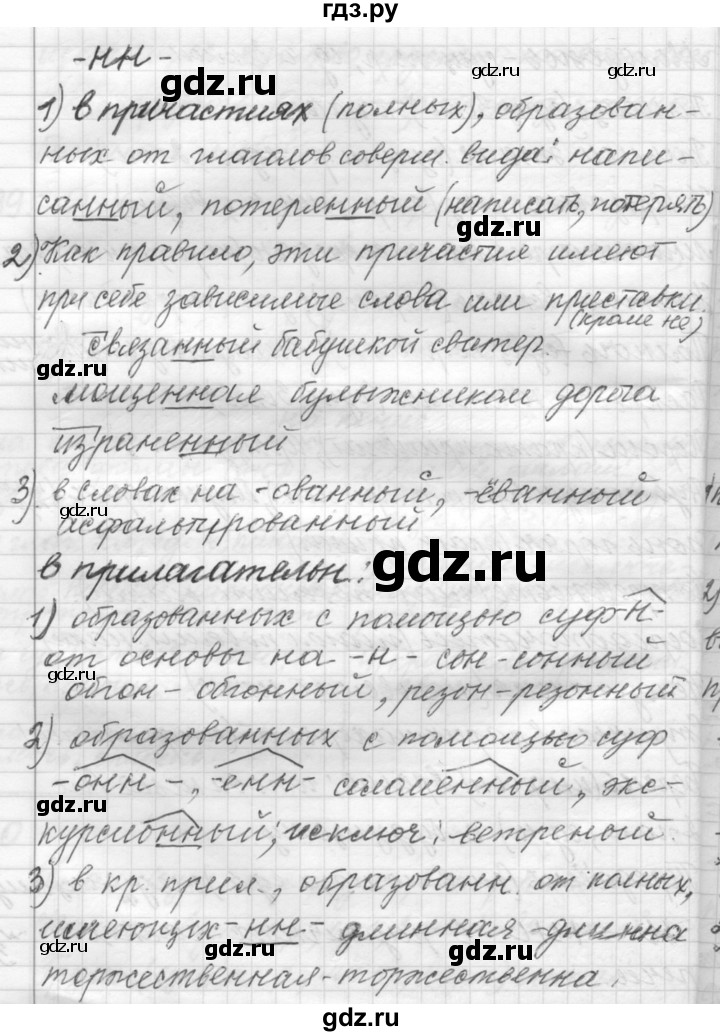 гдз.ру
-нн-
gdz.ru gdz.ru
1) в причастиях (полных), образован-
ных от глаголов соверш. вида: напи-
санный, потерянный (написать, потерять)
gdz.ru gdz.ru
2) Как правило, эти причастия имеют
при себе зависимые слова или приставки.
(кроме не)
связанный бабушкой свитер.
gdz.ru
мощенная булыжником дорога
израненный
3) в словах на -ованный, -ёванный
gdz.ru
асфальтированный
gdz.ru
в прилагательн.:
1) образованных с помощью суф -н-
от основы на -н- сон-сонный
gdz.ru
обгон - обгонный, резон-резонный
gdz.ru
2) образованных с помощью суф
-онн-, -енн- соломенный, экс-
gdz.ru
курсионный; исключ: ветреный.
3) в кр. прил., образованн. от полных,
gdz.ru
имеющих -нн- длинная - длинна
gdz.ru gdz.ru
торжественная - торжественна.
gdz.ru